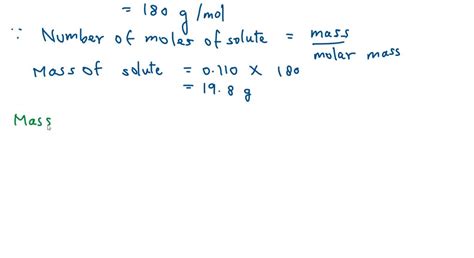 = 180 g/mol
∵ Number of moles of solute = mass / molar mass
Mass of solute = 0.110 × 180
= 19.8 g
Mass